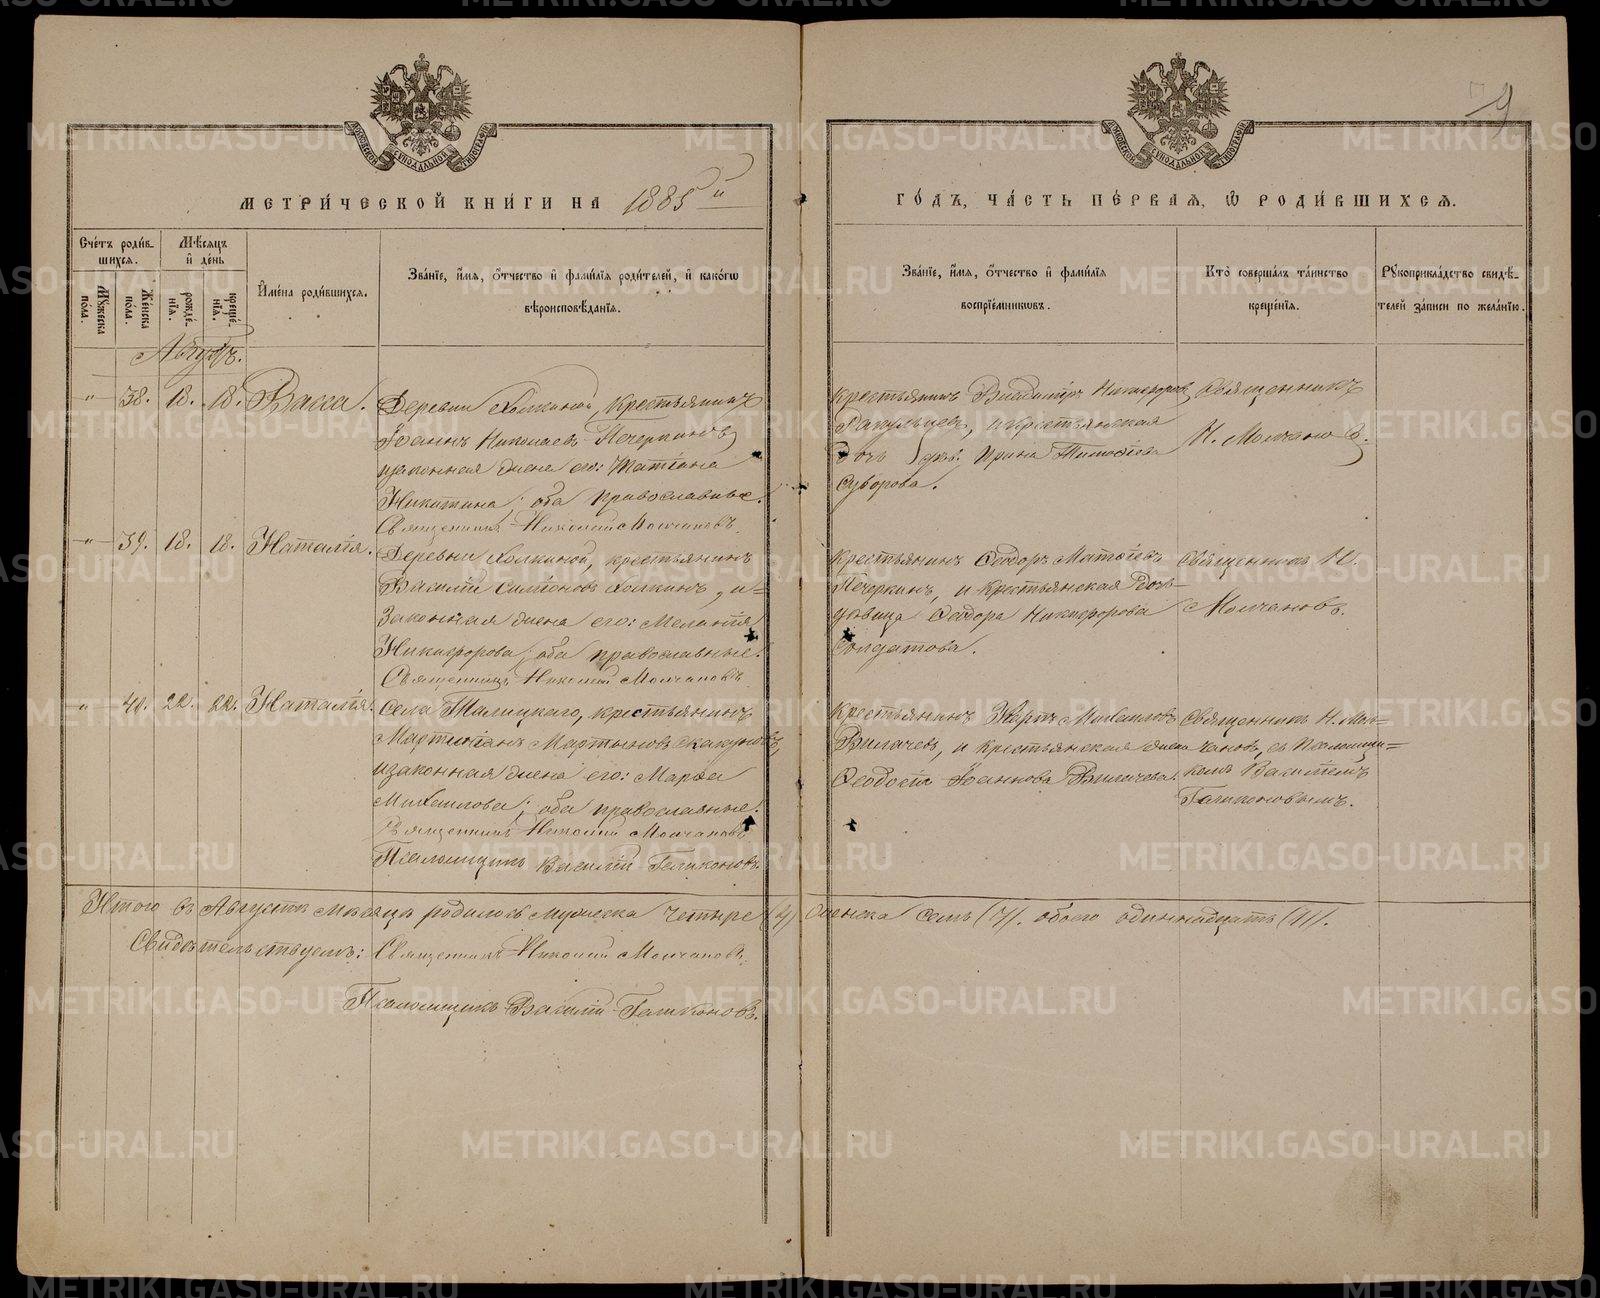 9
МЕТРИ́ЧЕСКОЙ КНИ́ГИ НА 1885й
ГО́ДЪ, ЧА́СТЬ ПЕ́РВАЯ, Ѿ РОДИ́ВШИХСЯ.
Сче́тъ роди́вшихся.
Мѣ́сяцъ и҆ де́нь
Му́жеска по́ла.
Же́нска по́ла.
рожде́нїя.
креще́нїя.
И҆мена́ роди́вшихся.
Зва́нїе, и҆́мя, ѻ҆́тчество и҆ фами́лїя роди́телей, и҆ како́гѡ
вѣроисповѣ́данїя.
Зва́нїе, и҆́мя, ѻ҆́тчество и҆ фами́лїя
воспрїе́мникѡвъ.
Кто̀ соверша́лъ та́инство
креще́нїя.
Рꙋкоприкла́дство свидѣ́-
телей за́писи по жела́нїю.
Августъ.
" 38. 18. 18. Васса.
Деревни Холкиной, крестьянинъ
Іоаннъ Николаевъ Печеркинъ
и законная жена его: Татіана
Никитина; оба православные.
Священникъ Николай Молчановъ
Крестьянинъ Владимiръ Никифоровъ
Рагульцевъ, и крестьянская
дочь дѣв. Ирина Тимофеева
Суворова.
Священникъ
Н. Молчановъ.
" 39. 18. 18. Наталія.
Деревни Холкиной, крестьянинъ
Василій Симеоновъ Холкинъ, и=
законная жена его: Меланія
Никифорова; оба православные.
Священникъ Николай Молчановъ
Крестьянинъ Ѳеодоръ Матѳіевъ
Печеркинъ, и крестьянская
Ѳеодора Никифорова
Солдатова.
Священникъ Н.
Молчановъ.
" 40. 22. 22. Наталія.
Села Талицкаго, крестьянинъ
Мартиніанъ Мартыновъ Скакуновъ,
и законная жена его: Марѳа
Михаилова; оба православные.
Священникъ Николай Молчановъ
Псаломщикъ Василій Геликоновъ
Крестьянинъ Карпъ Михаиловъ
Вилачевъ, и крестьянская жена
Ѳеодосія Іоаннова Вилачева.
Священникъ Н. Мол=
чановъ, съ Псаломщи=
комъ Василіемъ
Геликоновымъ.
Итого въ Августѣ мѣсяцѣ родилось мужеска четыре (4) женска семь (7). обоего одиннадцать (11).
Свидѣтельствуемъ: Священникъ Николай Молчановъ
Псаломщикъ Василій Геликоновъ.
METRIKI.GASO-URAL.RU